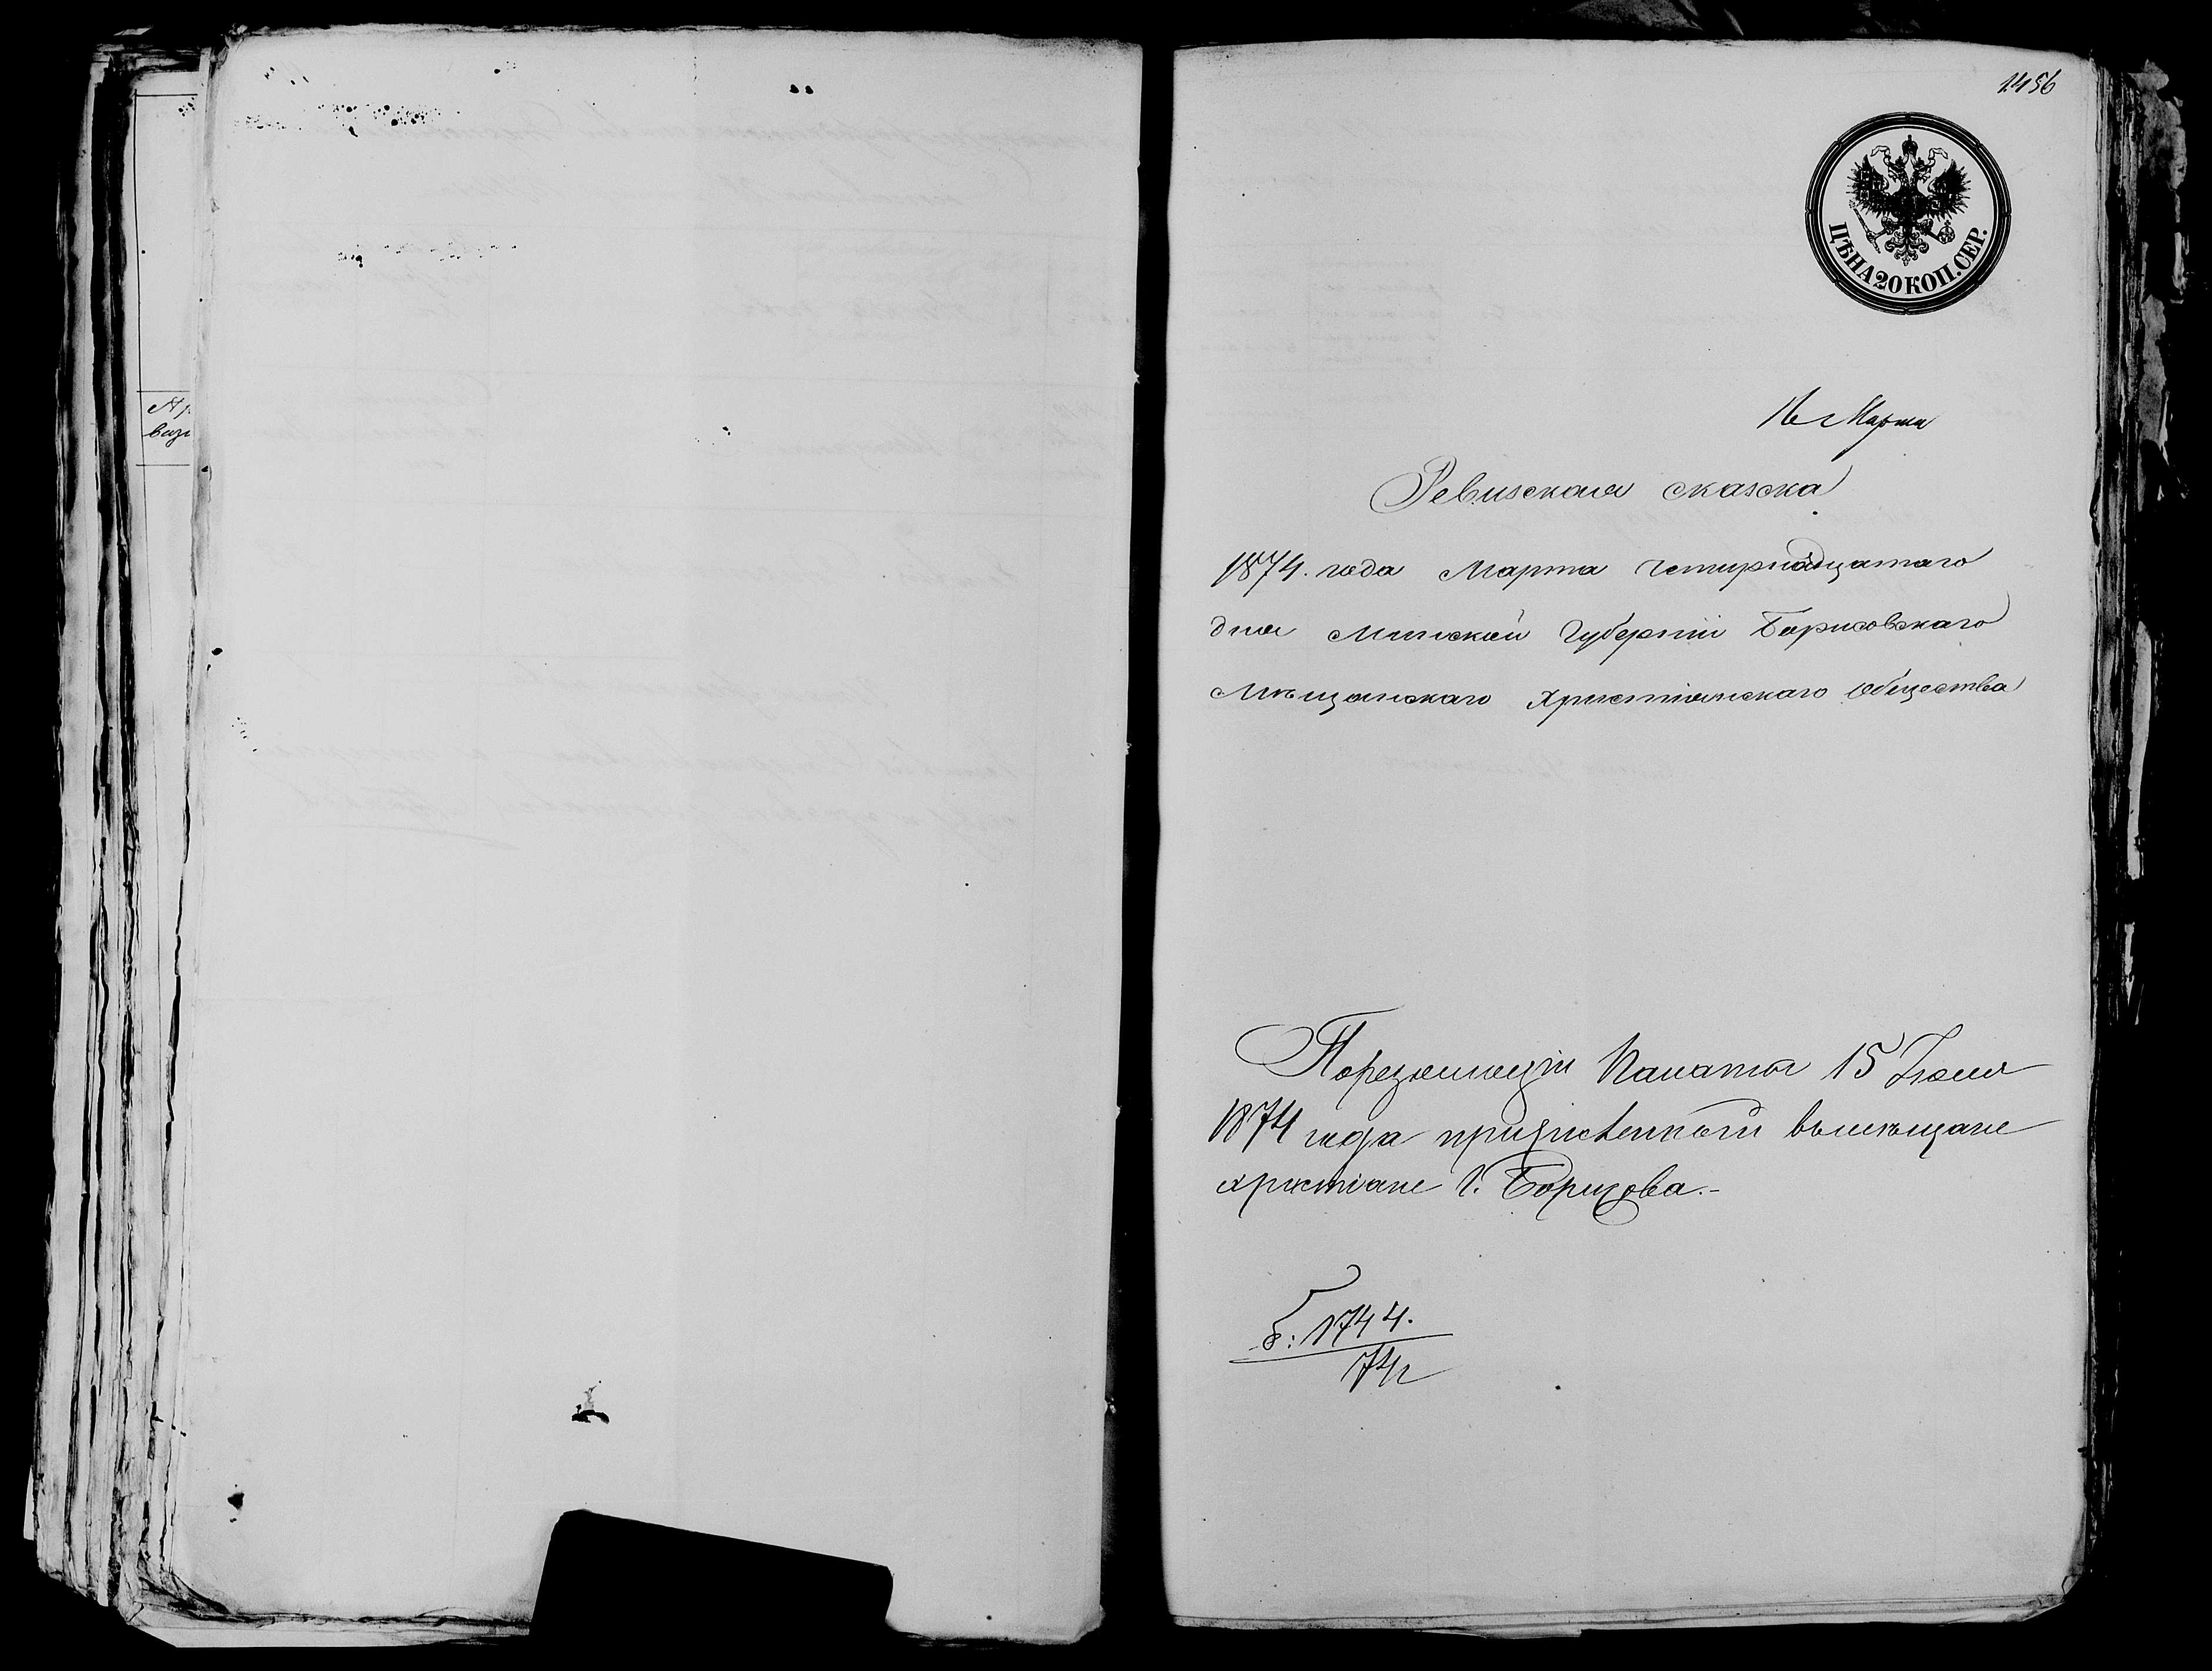 1456
ЦѢНА 20 КОП. СЕР.
16 Марта
Ревизская сказка
1874. года Марта четирнадцатаго
дня Минской Губерніи Борисовскаго
Мѣщанскаго Христіанскаго Общества
По резолюціи Палаты 15 Іюля
1874 года причисленный въ мѣщане
христіане г. Борисова.-
Б: 1744.
74 г